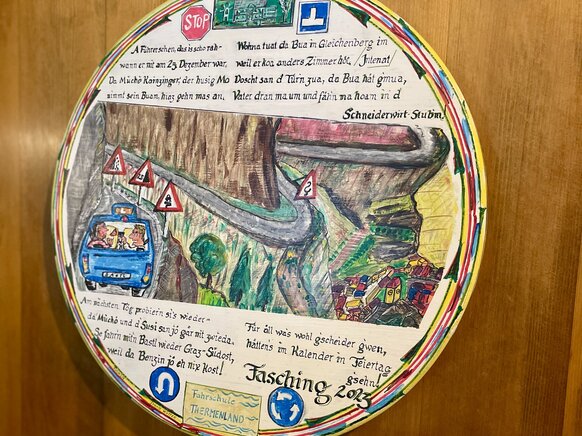 STOP
A Führerschein, das is scho rah-
wann er mit am 23. Dezember war.
Da Müchö Kainzinger, der husig Mo
nimmt sein Buam, hiaz gehn mas an.
Wohna tuat da Bua in Gleichenberg im
weil er koa anders Zimmer hat. /Internat/
Doscht san d' Türn zua, da Bua hât gmua,
Vater dran ma um und fâhrn ma hoam in d
Schneiderwirt-Stubm.
Am nächsten Tôg probiern si's wieder-
da' Müchö und d'Susi san jô gâr nit zwieda.
Se fahrn mitn Bastl wieder Graz-Südost,
weil da Benzin jô eh nix kost!
Für âll wa's wohl gscheider gwen,
hâttens im Kalender in Feiertag
gsehn!
Fasching 2023
Fahrschule
THERMENLAND